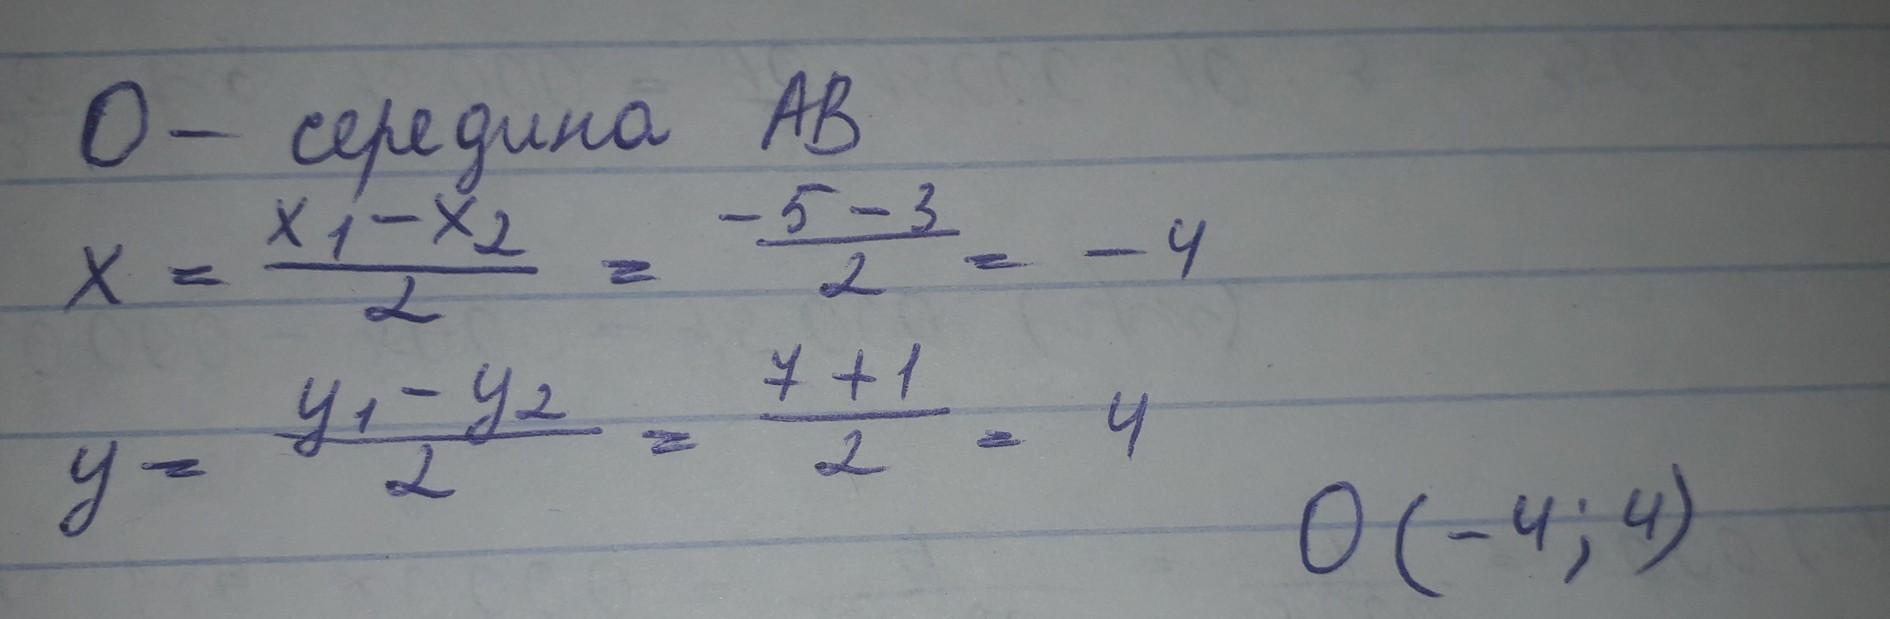 O - середина AB
x = (x₁ - x₂)/2 = (-5 - 3)/2 = -4
y = (y₁ - y₂)/2 = (7 + 1)/2 = 4
O (-4; 4)